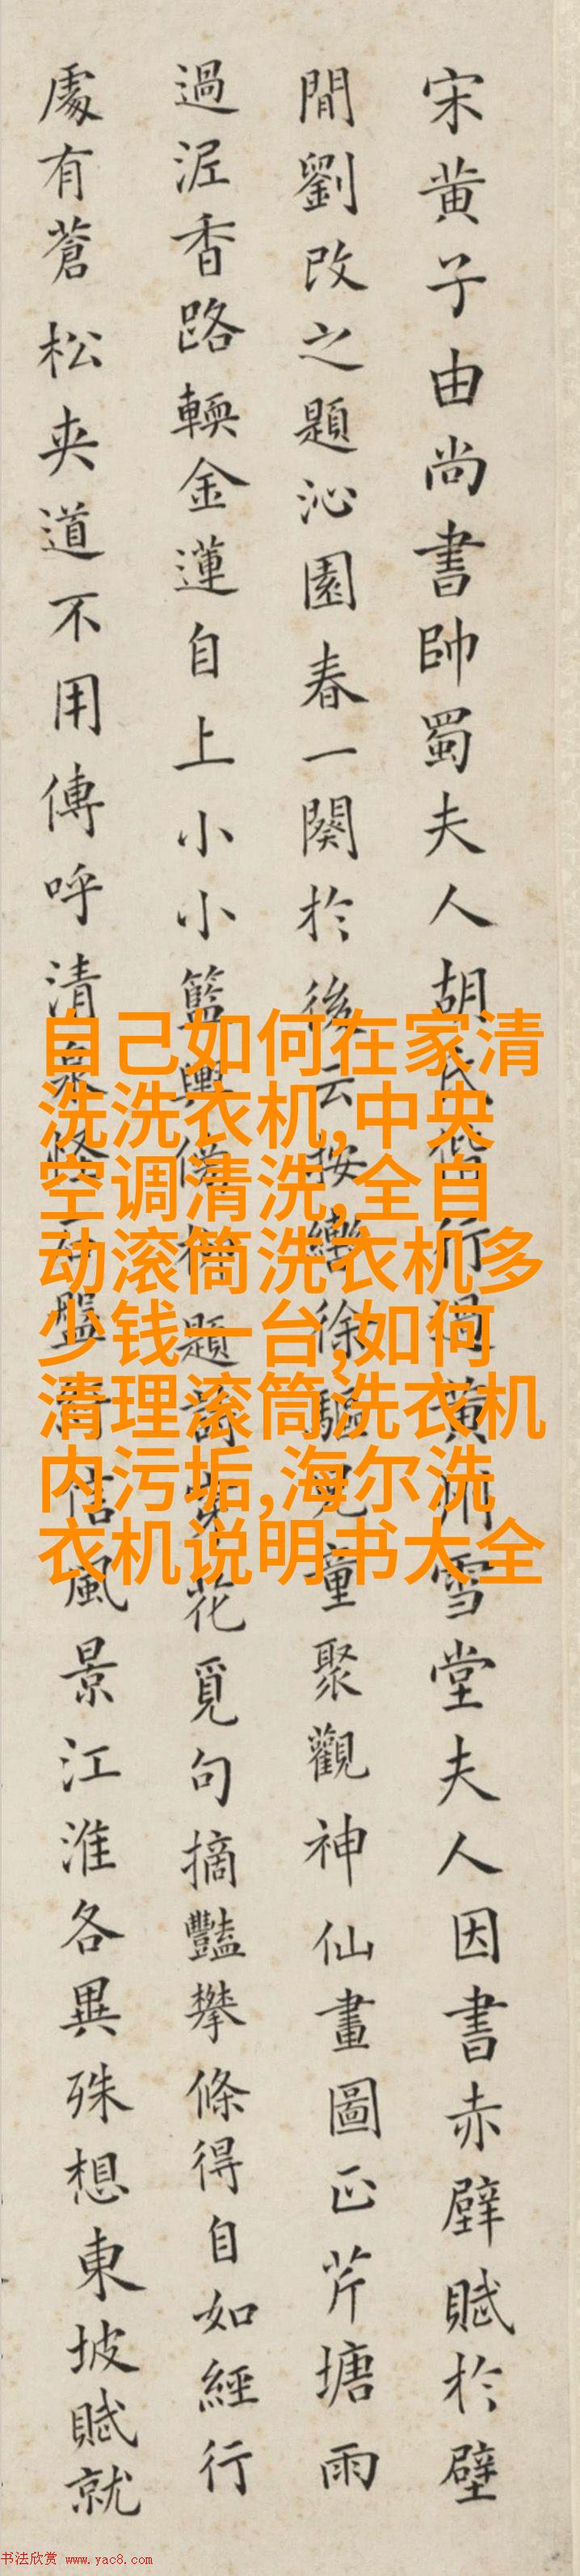 宋黄子由尚書帥蜀夫人胡氏偕行過黄州雪堂夫人因書赤壁賦扵壁
間劉改之題沁園春一闋扵後云按轡徐驅兒童聚觀神仙畫圖正芹塘雨
過泥香路輭金蓮自上小小籃輿傍柳題詩穿花覓句摘豔攀條得自如經行
處有蒼松夾道不用傳呼清泉怪石盤紆信風景江淮各異殊想東坡賦就
自己如何在家清
洗洗衣机,中央
空调清洗,全自
动滚筒洗衣机多
少钱一台,如何
清理滚筒洗衣机
内污垢,海尔洗
衣机说明书大全
书法欣赏 www.yac8.com